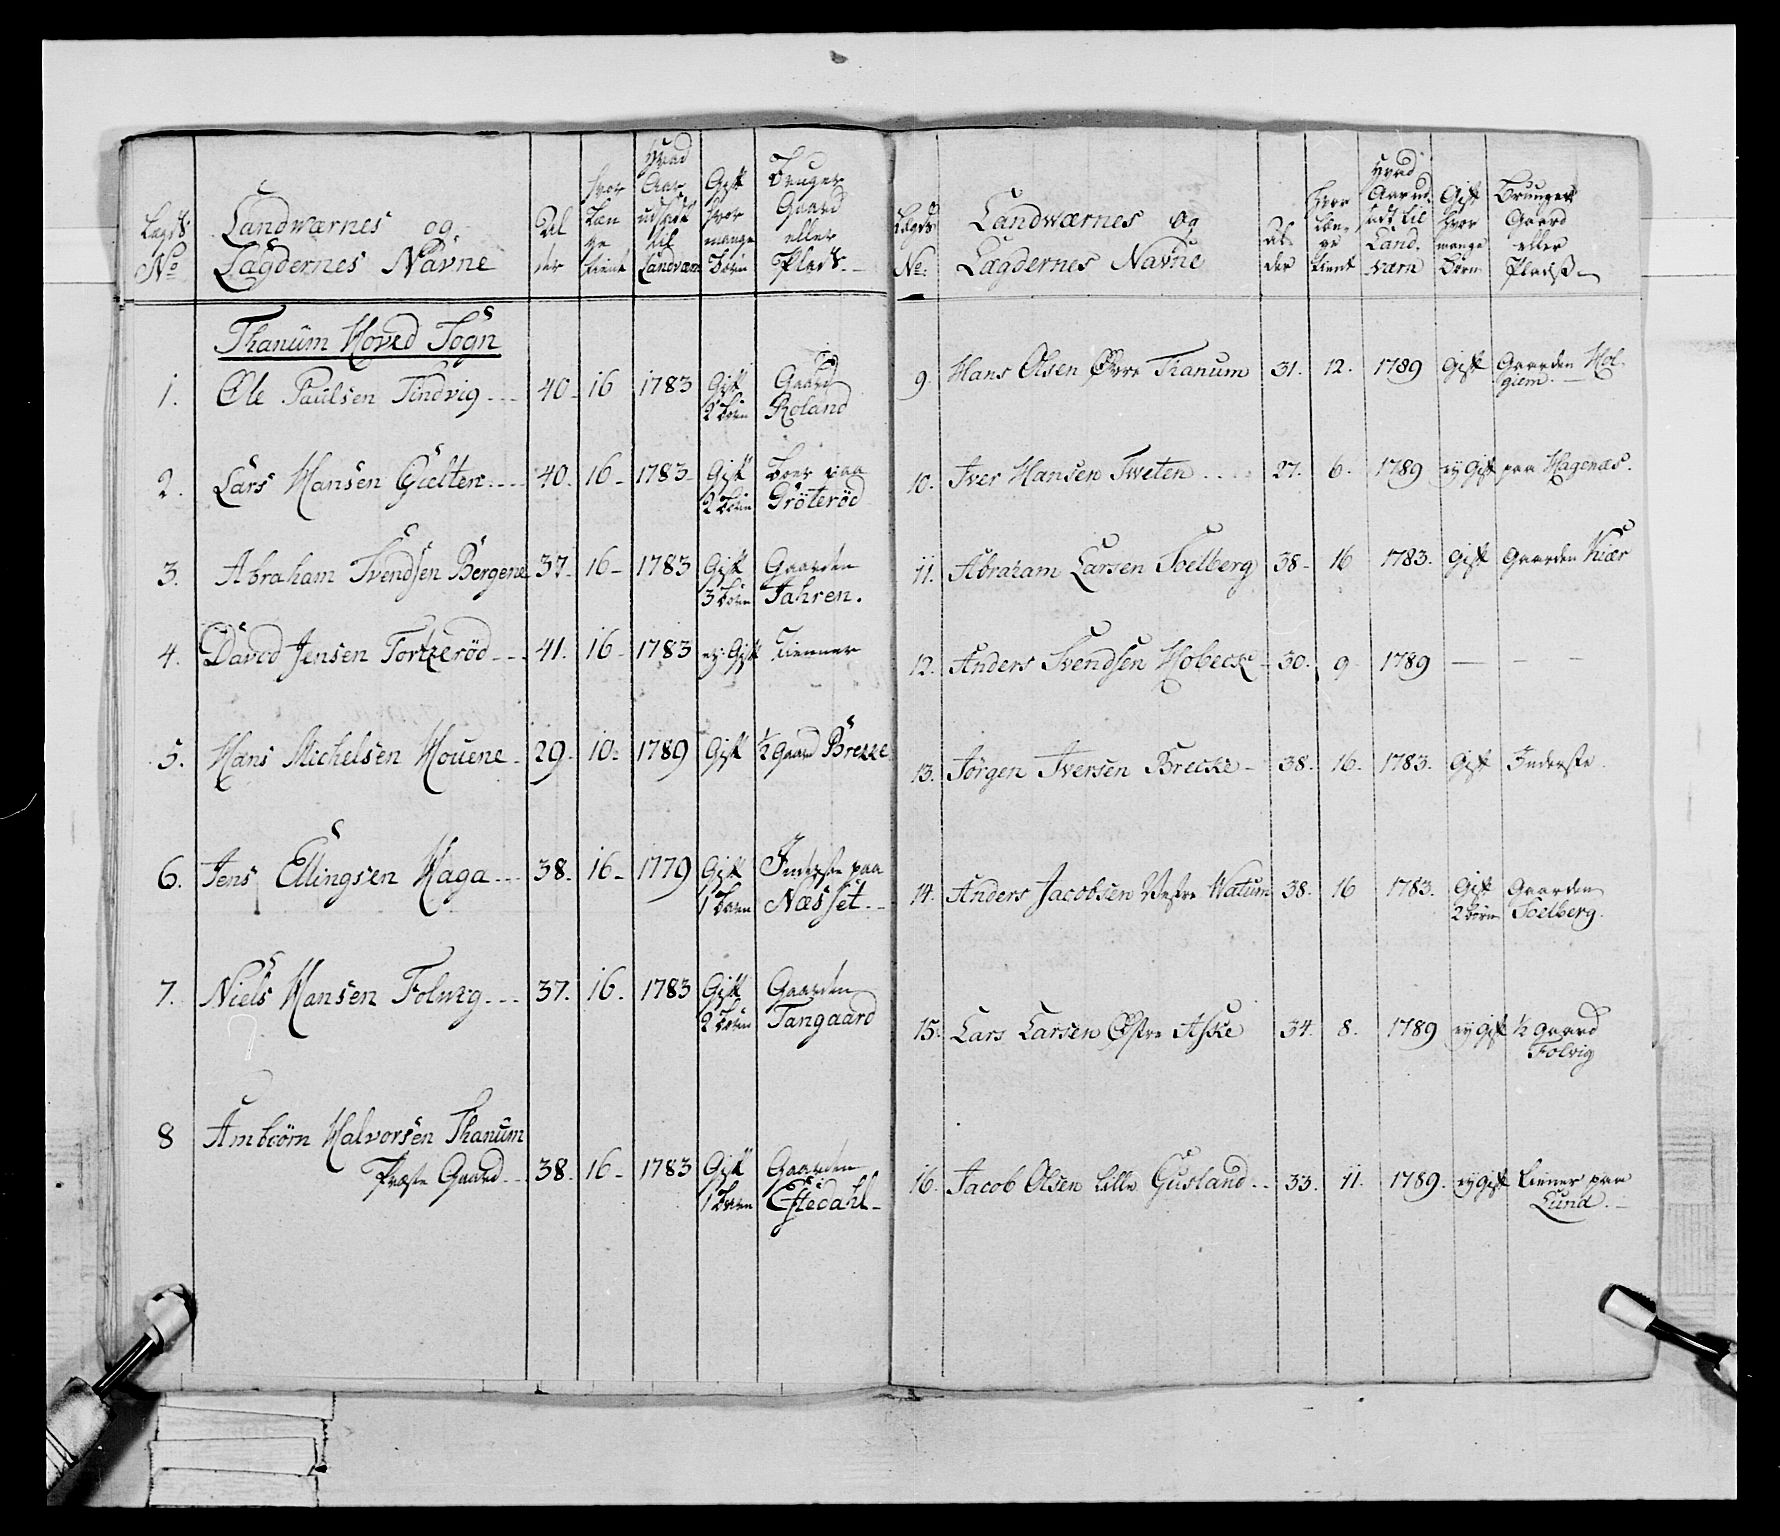 Lægds No
Landwærnes og Lægdernes Navne
Al der
hvor Læn ge tient
Hvad Aar udsadt til Landværn
Gift hvor mange Børn
Bruger Gaard eller Plads.
Thanum Hoved Sogn
1. Ole Paulsen Tindvig 40 16 1783 Gift 2 Børn Gaard Roland
2. Lars Hansen Gielten 40. 16 1783 Gift 2 Børn Boer paa Gröteröd
3. Abraham Svendsen Bergene 37 16 1783 Gift 3 Børn Gaarden Jahren.
4. David Jensen Torkeröd 41. 16 1783 ey Gift Tienner
5. Hans Michelsen Houene 29. 10 1789 Gift 1/2 Gaard Brekke
6. Jens Ellingsen Haga 38. 16 1779 Gift 1 Barn Inderste paa Næsset
7. Niels Hansen Folwig 37. 16. 1783 Gift 2 Børn Gaarden Tangaard
8 Ambiörn Halvorsen Thanum
Præste Gaard 38. 16 1783 Gift 1 Barn Gaarden Eftedahl
Lægds No.
Landwærnes og Lægdernes Navne
Al der
hvor Læn ge tient
Hvad Aar ud sadt til Land. værn
Gift hvor mange Børn
Bruuger Gaard eller Pladss
9. Hans Olsen Øvre Tranum 31. 12. 1789 Gift Gaarden Hol giem.
10. Iver Hansen Tweten 27. 6. 1789 ey Gift paa Hagenæs.
11. Abraham Larsen Soelberg 38 16 1783. Gift Gaarden Kiær
12. Anders Svendsen Hobeck 30. 9 1789 — — —
13. Jørgen Iversen Brecke 38. 16. 1783. Gift Inderste.
14. Anders Jacobsen Vestre Watum 38. 16 1783. Gift 2 børn Gaarden Soelberg.
15. Lars Larsen Østre Aske 34. 8. 1789 ey Gift 1/2 Gaard Folvig
16. Jacob Olsen lille Gusland 33. 11. 1789. ey Gift tiener paa Lund.